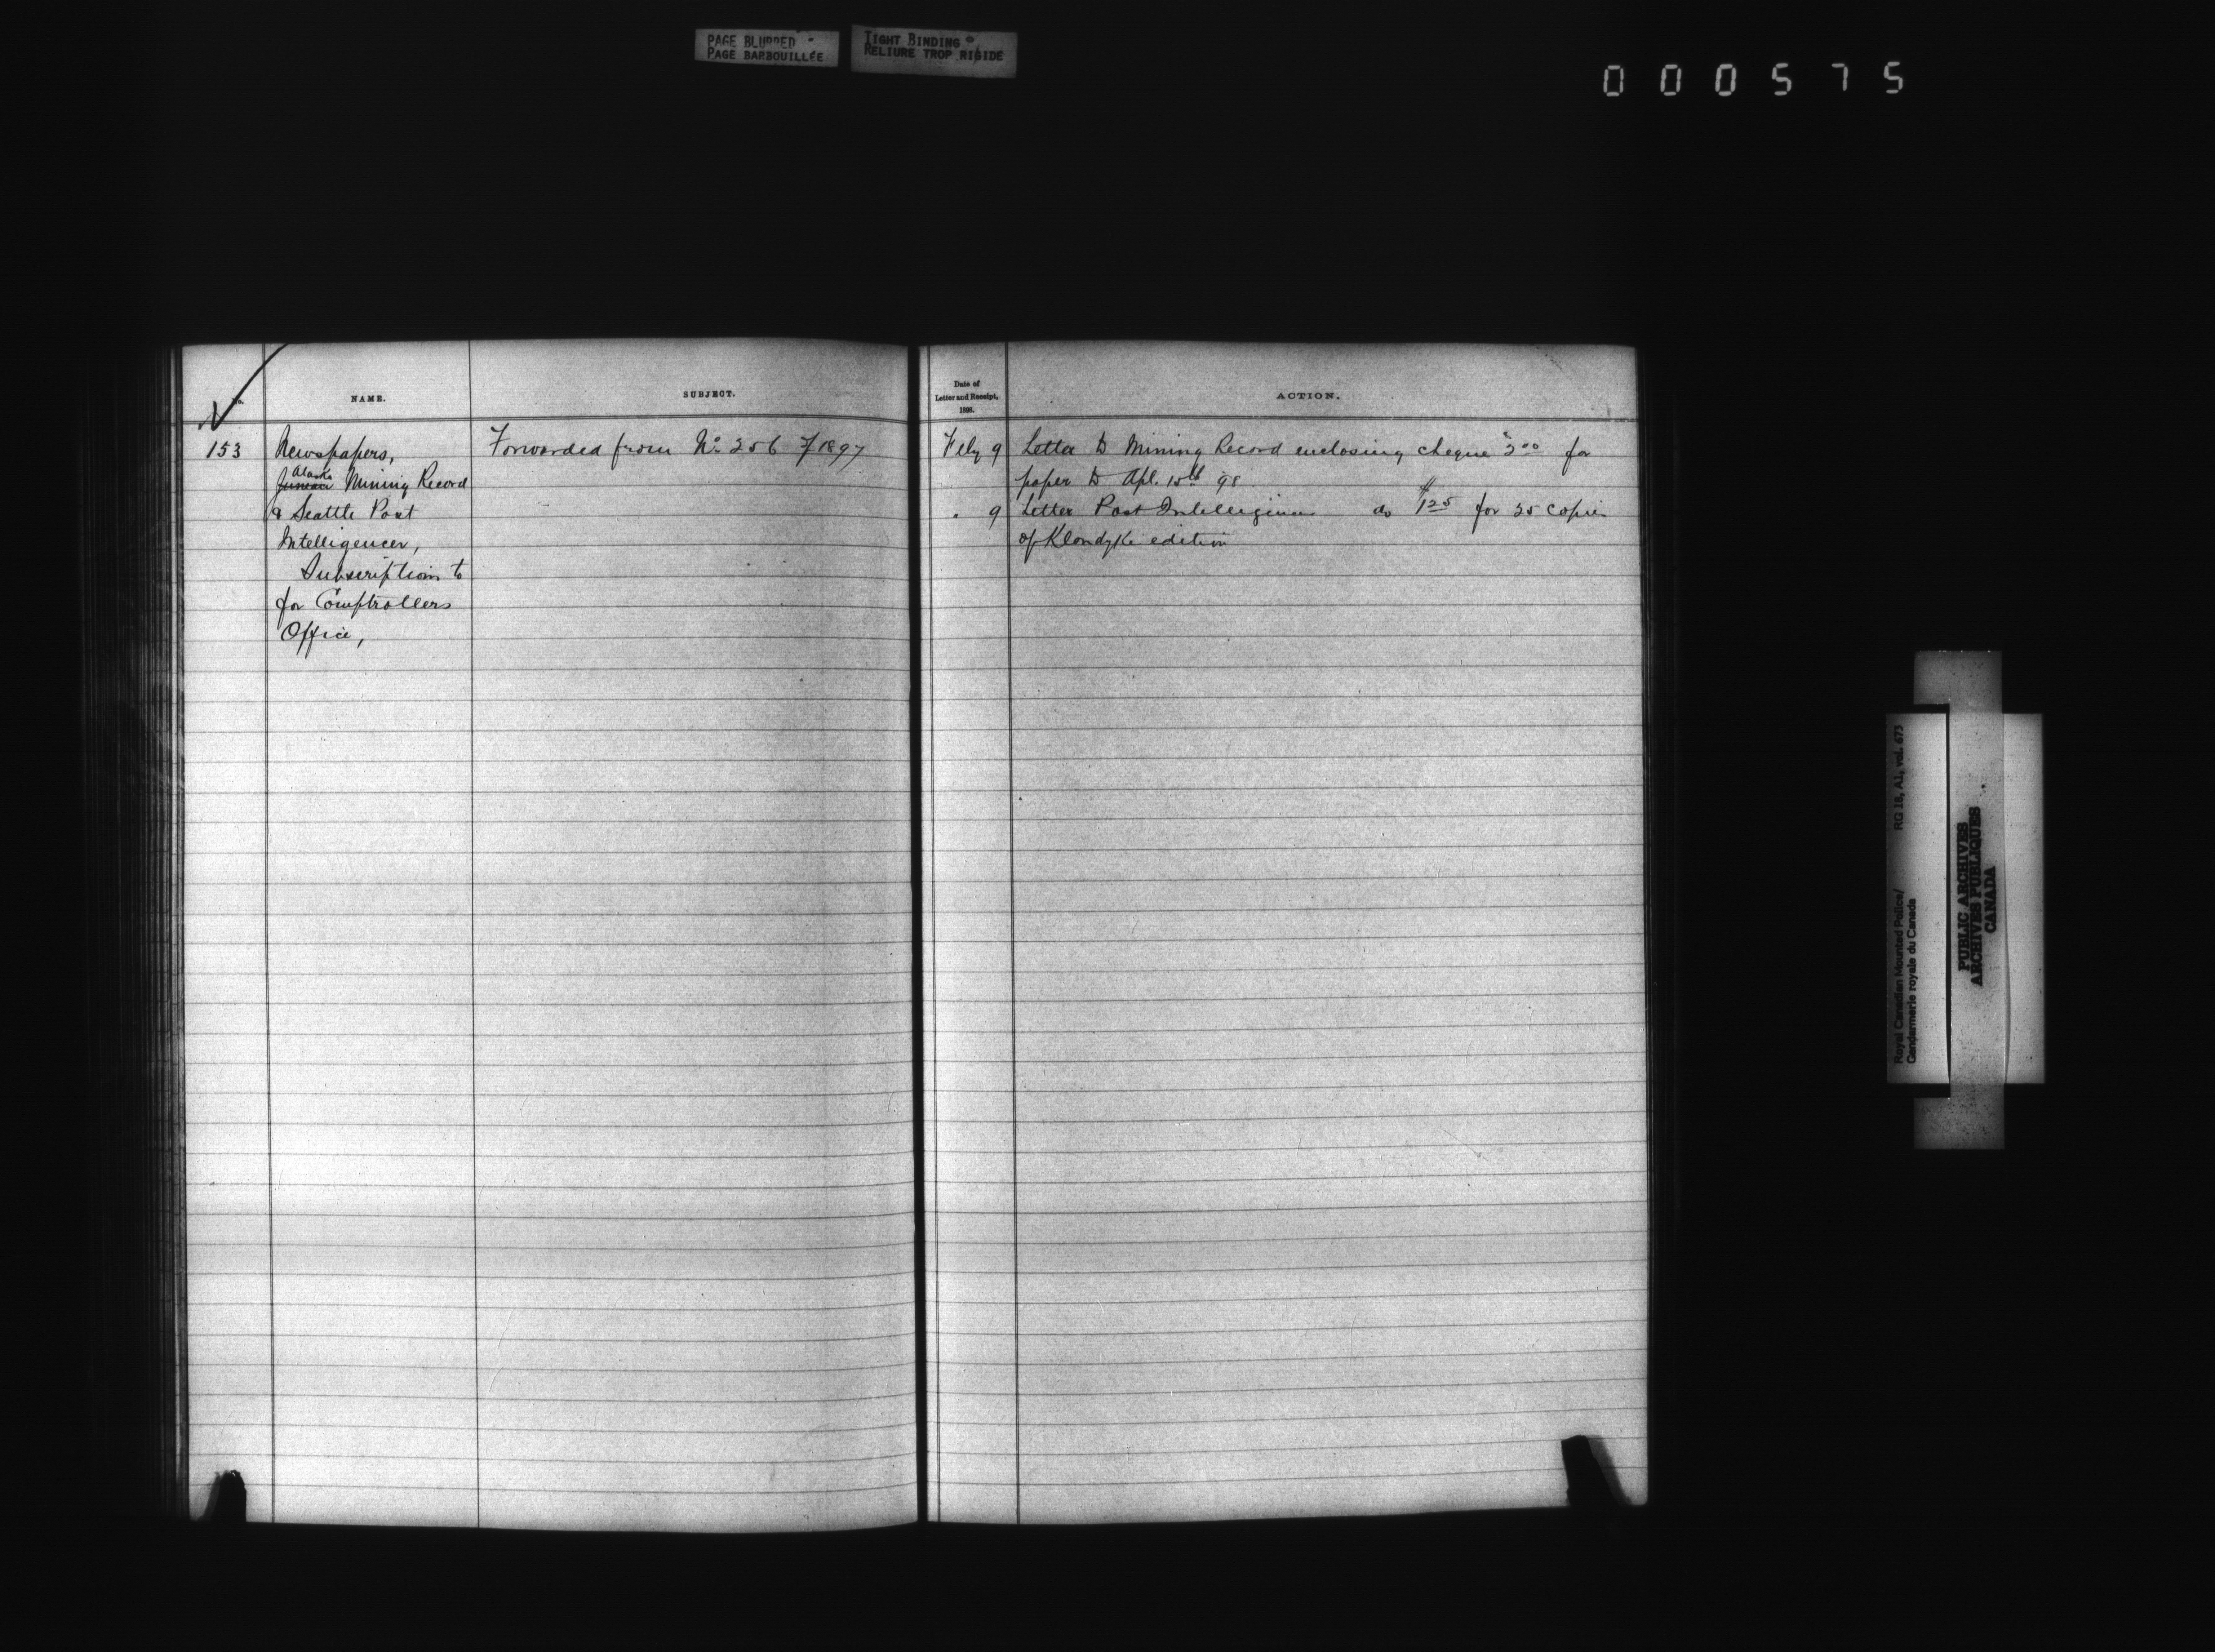 PAGE BLURRED
PAGE BARBOUILLÉE
TIGHT BINDING
RELIURE TROP RIGIDE
000575
No.
NAME.
SUBJECT.
Date of
Letter and Receipt,
1898.
ACTION.
N
153
Newspapers,
Alaska
Juneau Mining Record
& Seattle Post
Intelligencer,
Subscriptions to
for Comptrollers
Office,
Forwarded from No 256 / 1897
Feby 9 Letter to Mining Record enclosing cheque $3.00 for
paper to Apl. 15th 98.
" 9 Letter Post Intelligencer do $1.25 for 25 copies
of Klondyke edition
Royal Canadian Mounted Police/
Gendarmerie royale du Canada
RG 18, A1, vol. 673
PUBLIC ARCHIVES
ARCHIVES PUBLIQUES
CANADA